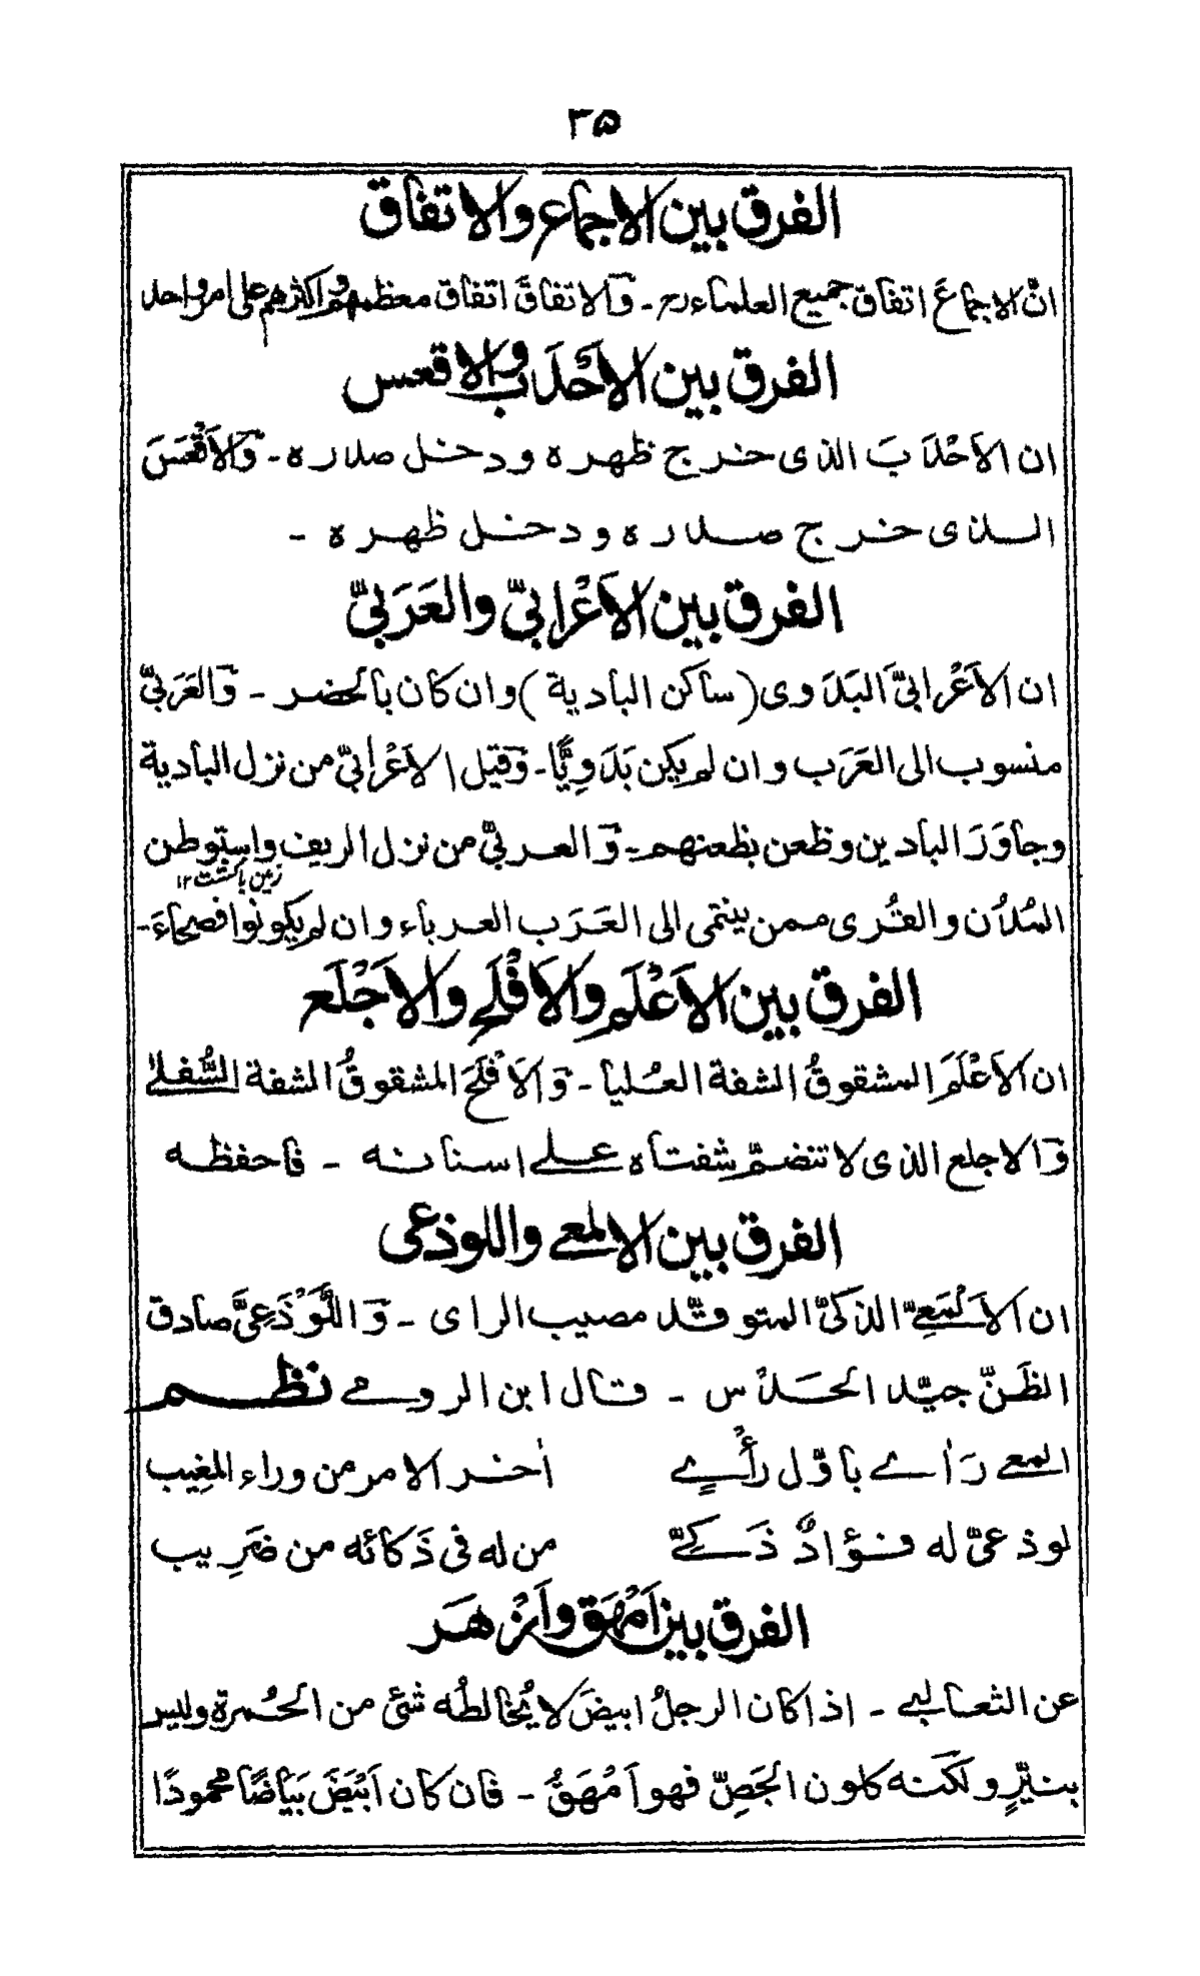 ۳۵
الفرق بين الاجماع والاتفاق
انّ الاجماعَ اتفاق جميع العلماء رح ـ والاتفاقَ اتفاق معظمهم واكثرهم على امر واحد
الفرق بين الاَحْدَب والاقعس
ان الاَحْدَبَ الذى خرج ظهره ودخل صدره ـ والاَقْعَسَ
الذى خرج صدره ودخل ظهره ـ
الفرق بين الاَعْرابىّ والعَرَبىّ
ان الاَعْرابىَّ البَدَوى (ساكن البادية) وان كان بالحضر ـ والعَرَبىَّ
منسوب الى العَرَب وان لم يكن بَدَوِيًّا ـ وقيل الاَعْرابىّ من نزل البادية
وجاوَرَ البادين وظعن بظعنهم ـ والعربىّ من نزل الريف واستوطن
زمين باكشت ۱۲
المُدُن والقُرى ممن ينتمى الى العَرَب العرباء وان لم يكونوا فصحاءَ ـ
الفرق بين الاَعْلَم والاَفْلَح والاَجْلَع
ان الاَعْلَمَ المشقوقُ الشفة العُليا ـ والاَفْلَحَ المشقوقُ الشفة السُّفلے
والاجلع الذى لا تنضمّ شفتاه علے اسنانه ـ فاحفظه
الفرق بين الالمعے واللوذعى
ان الاَلْمَعِےّ الذكىّ المتوقّد مصيب الراى ـ واللَّوْذَعِىَّ صادق
الظَنّ جيّد الحَدْس ـ قال ابن الرومے نظم
المعے رَاٰے باوّل رأْىٍ اٰخر الامر من وراء المغِيب
لوذعىّ له فؤادٌ ذَكِےّ من له فى ذَكائه من ضَرِيب
الفرق بين اَمْهَق واَزْهَر
عن الثعالبے ـ اذا كان الرجلُ ابيضَ لا يُخالطُه شئ من الحُمرةِ وليس
بنيّرٍ ولكنه كلون الجَصِّ فهو اَمْهَقُ ـ فان كان اَبْيَضَ بَيَاضًا محمودًا